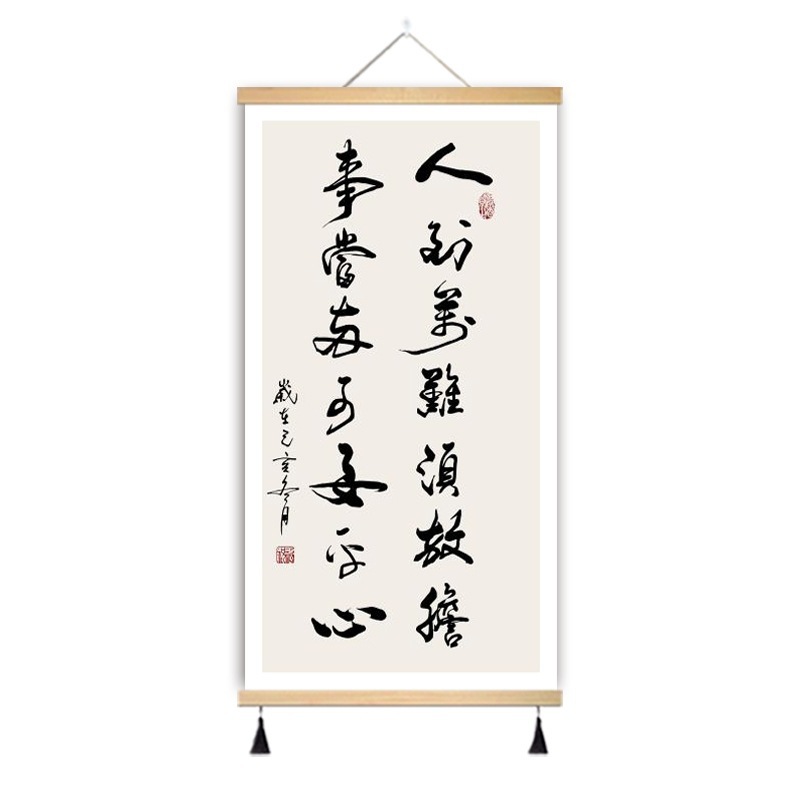 人到萬難須放膽
事當兩可要平心
歲在己亥冬月